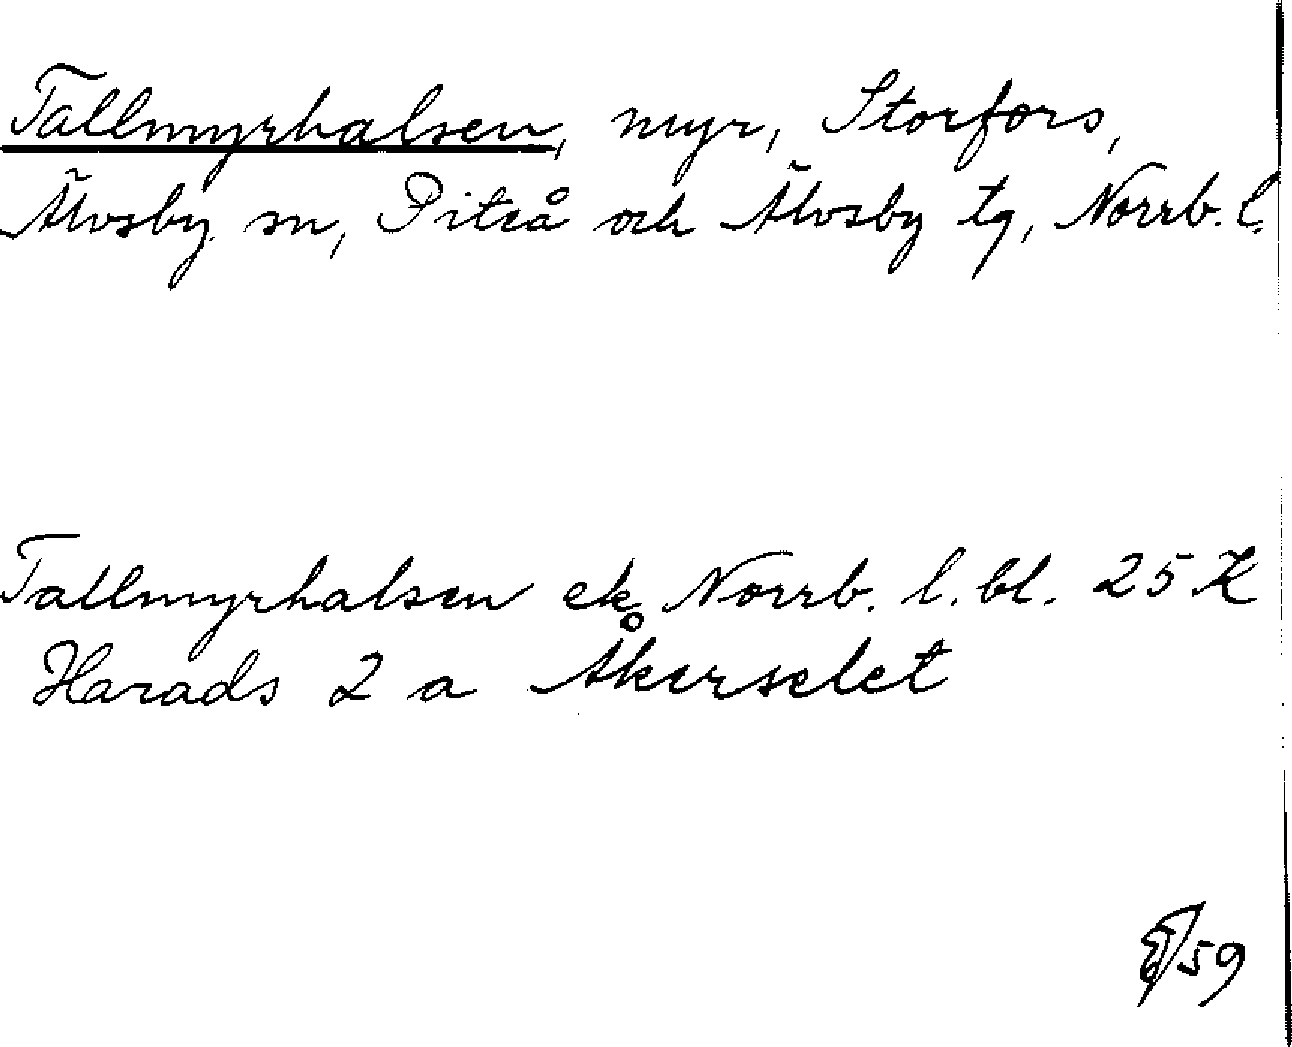 Tallmyrhalsen, myr, Storfors,
Älvsby sn, Piteå och Älvsby tg, Norrb. l.
Tallmyrhalsen ek Norrb. l. bl. 25 K
Harads 2 a Åkerselet
/59